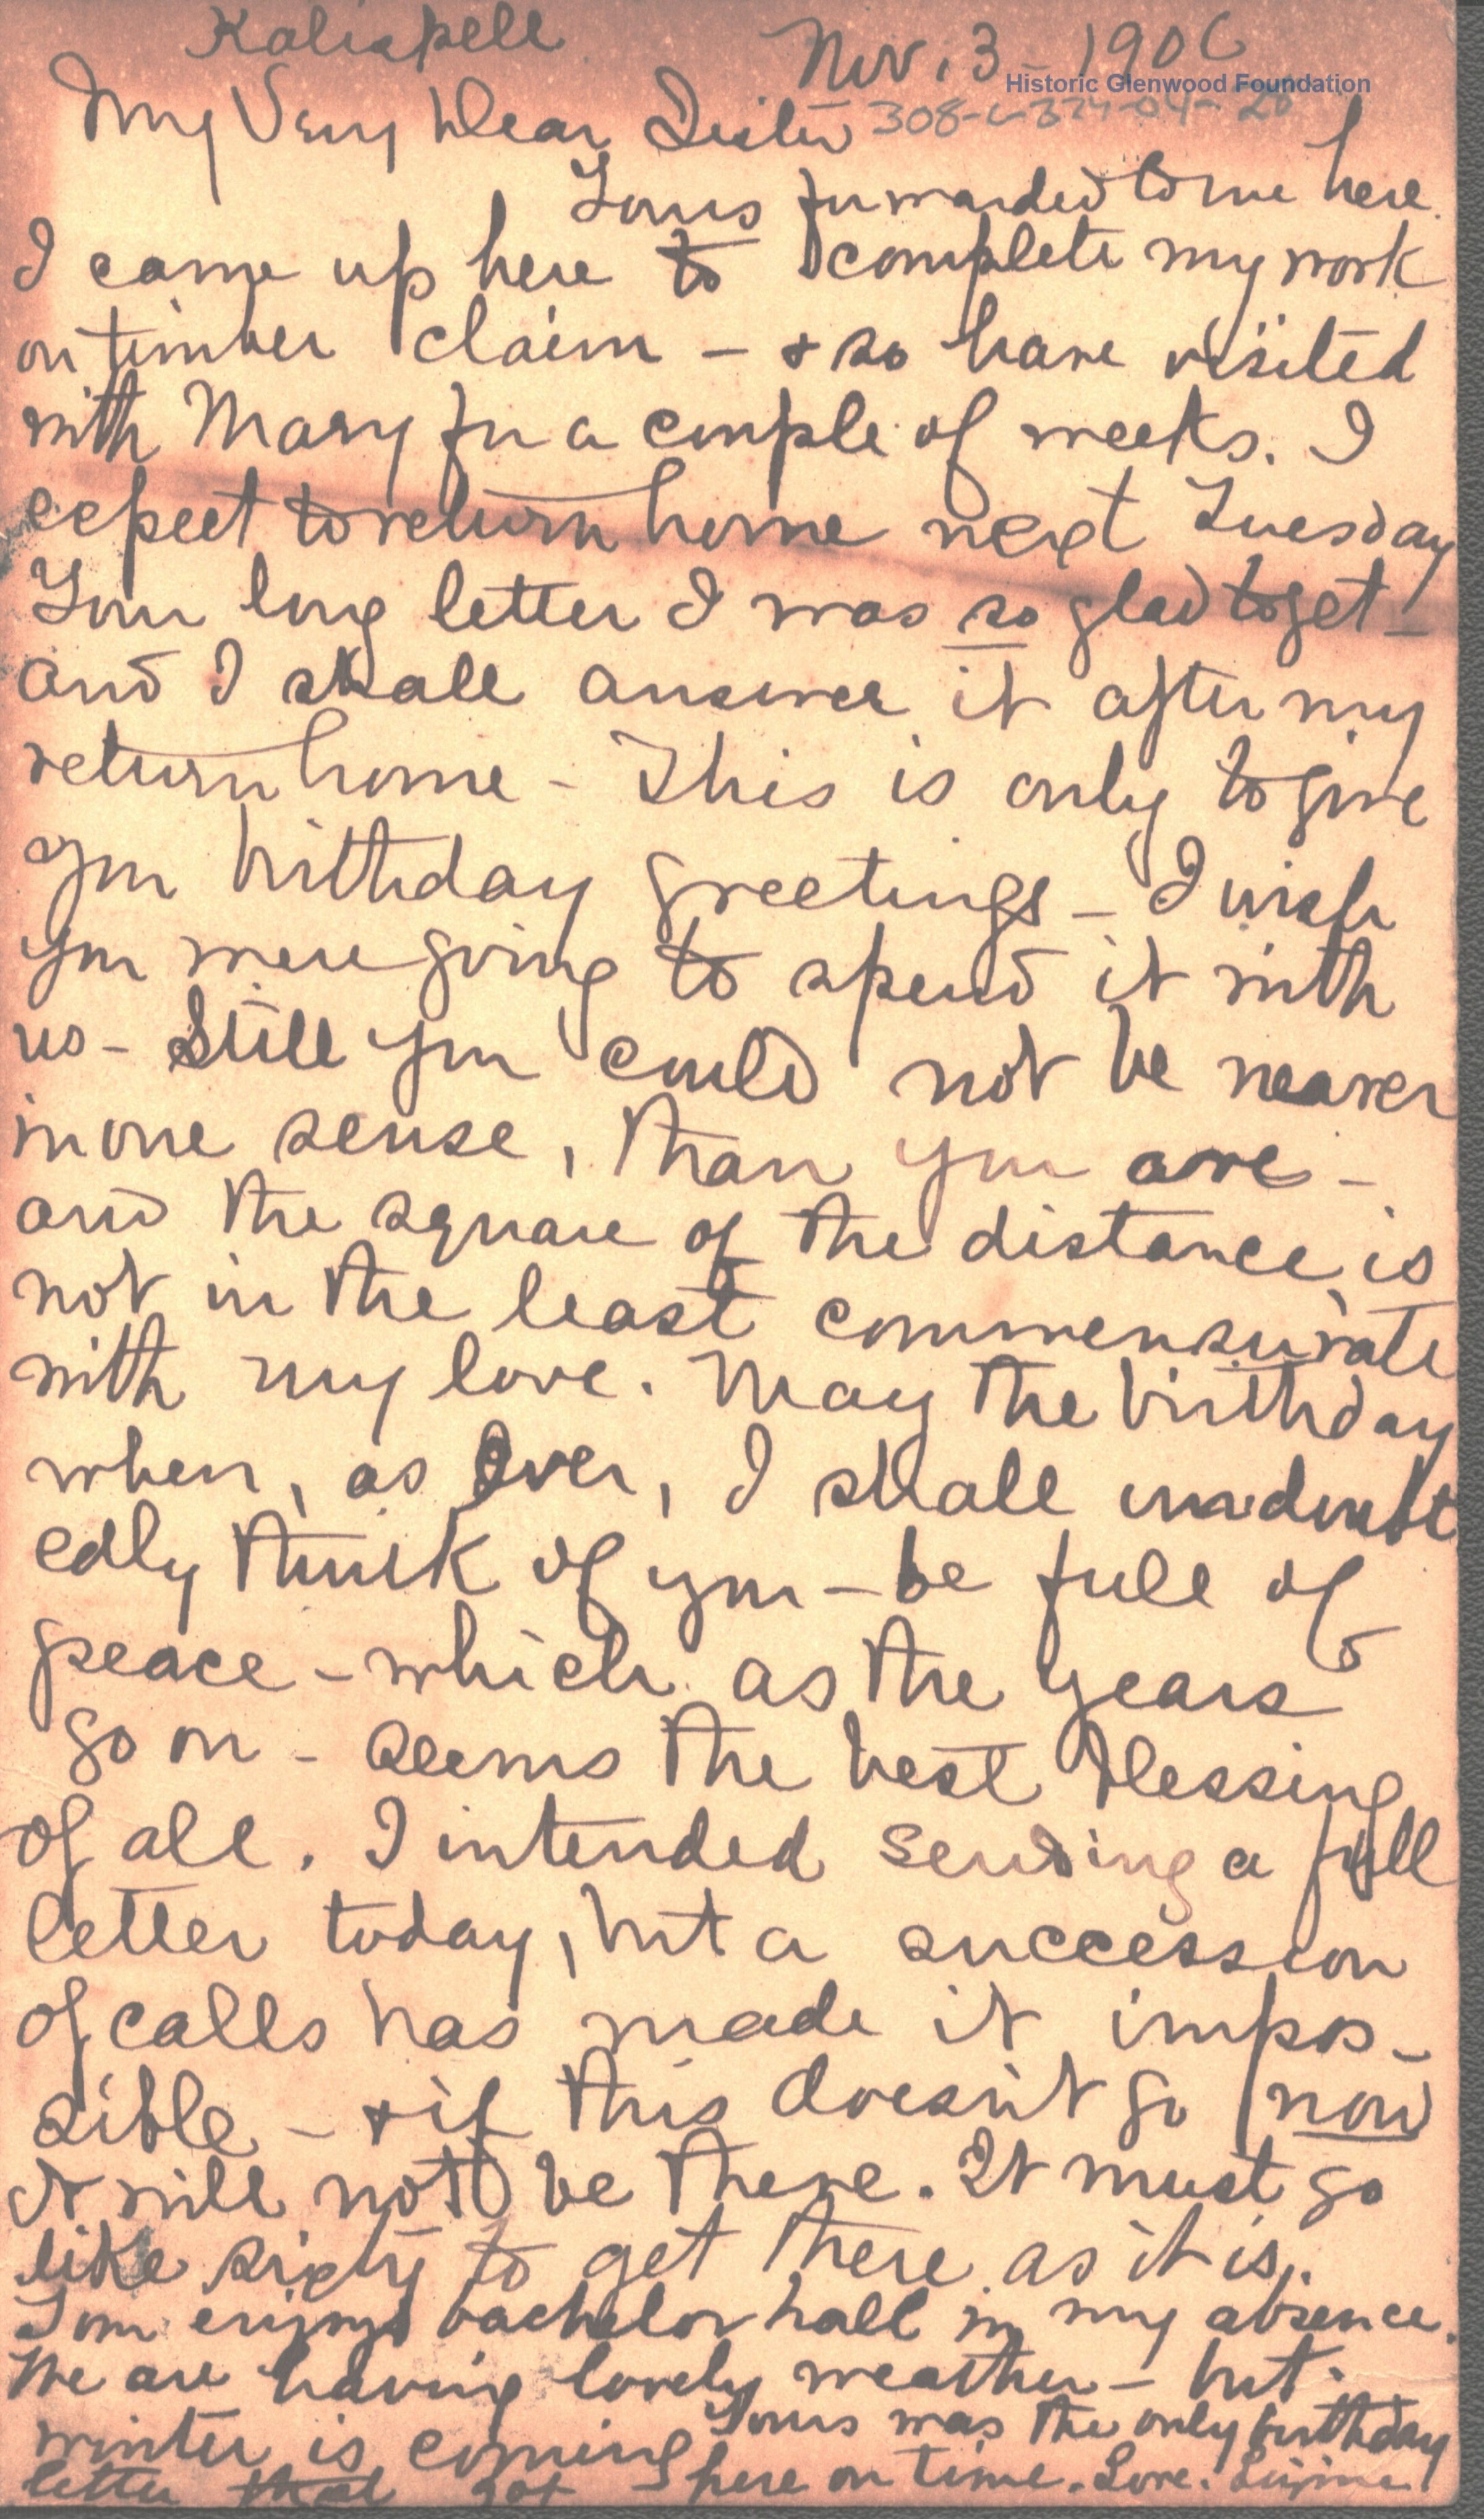 Kalispell Nov. 3 - 1906
Historic Glenwood Foundation
My Very Dear Sister
Yours forwarded to me here.
I came up here to complete my work
on timber claim - & so have visited
with Mary for a couple of weeks. I
expect to return home next Tuesday
Your long letter I was so glad to get -
and I shall answer it after my
return home - This is only to give
you birthday greetings - I wish
you were going to spend it with
us - Still you could not be nearer
in one sense, than you are -
and the square of the distance is
not in the least commensurate
with my love. May the birthday
when, as ever, I shall undoubt
edly think of you - be full of
peace - which as the years
go on - seems the best blessing
of all. I intended sending a full
letter today, but a succession
of calls has made it impos-
sible - & if this doesn't go now
it will not be there. It must go
like sixty to get there as it is.
Tom enjoys bachelor hall in my absence.
We are having lovely weather - but
winter is coming Yours was the only birthday
letter that got here on time. Love.